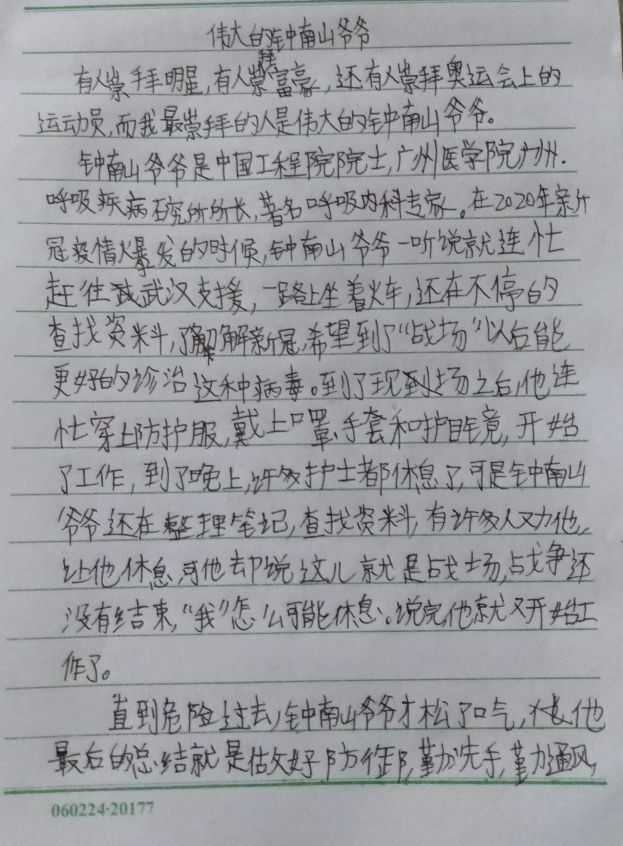 伟大的钟南山爷爷
有人崇拜明星,有人崇拜富豪,还有人崇拜奥运会上的
运动员,而我最崇拜的人是伟大的钟南山爷爷。
钟南山爷爷是中国工程院院士,广州医学院广州.
呼吸疾病研究所所长,著名呼吸内科专家。在2020年新
冠疫情爆发的时候,钟南山爷爷一听说就连忙
赶往武汉支援,一路上坐着火车,还在不停的
查找资料,了解新冠,希望到了“战场”以后能
更好的诊治这种病毒。到了现到场之后,他连
忙穿上防护服,戴上口罩,手套和护目镜,开始
了工作,到了晚上,许多护士都休息了,可是钟南山
爷爷还在整理笔记,查找资料,有许多人劝他,
让他休息,可他却说这儿就是战场,战争还
没有结束,“我”怎么可能休息。说完他就又开始工
作了。
直到危险过去,钟南山爷爷才松了口气,他
最后的总结就是做好防御,勤洗手,勤通风,
060224·20177